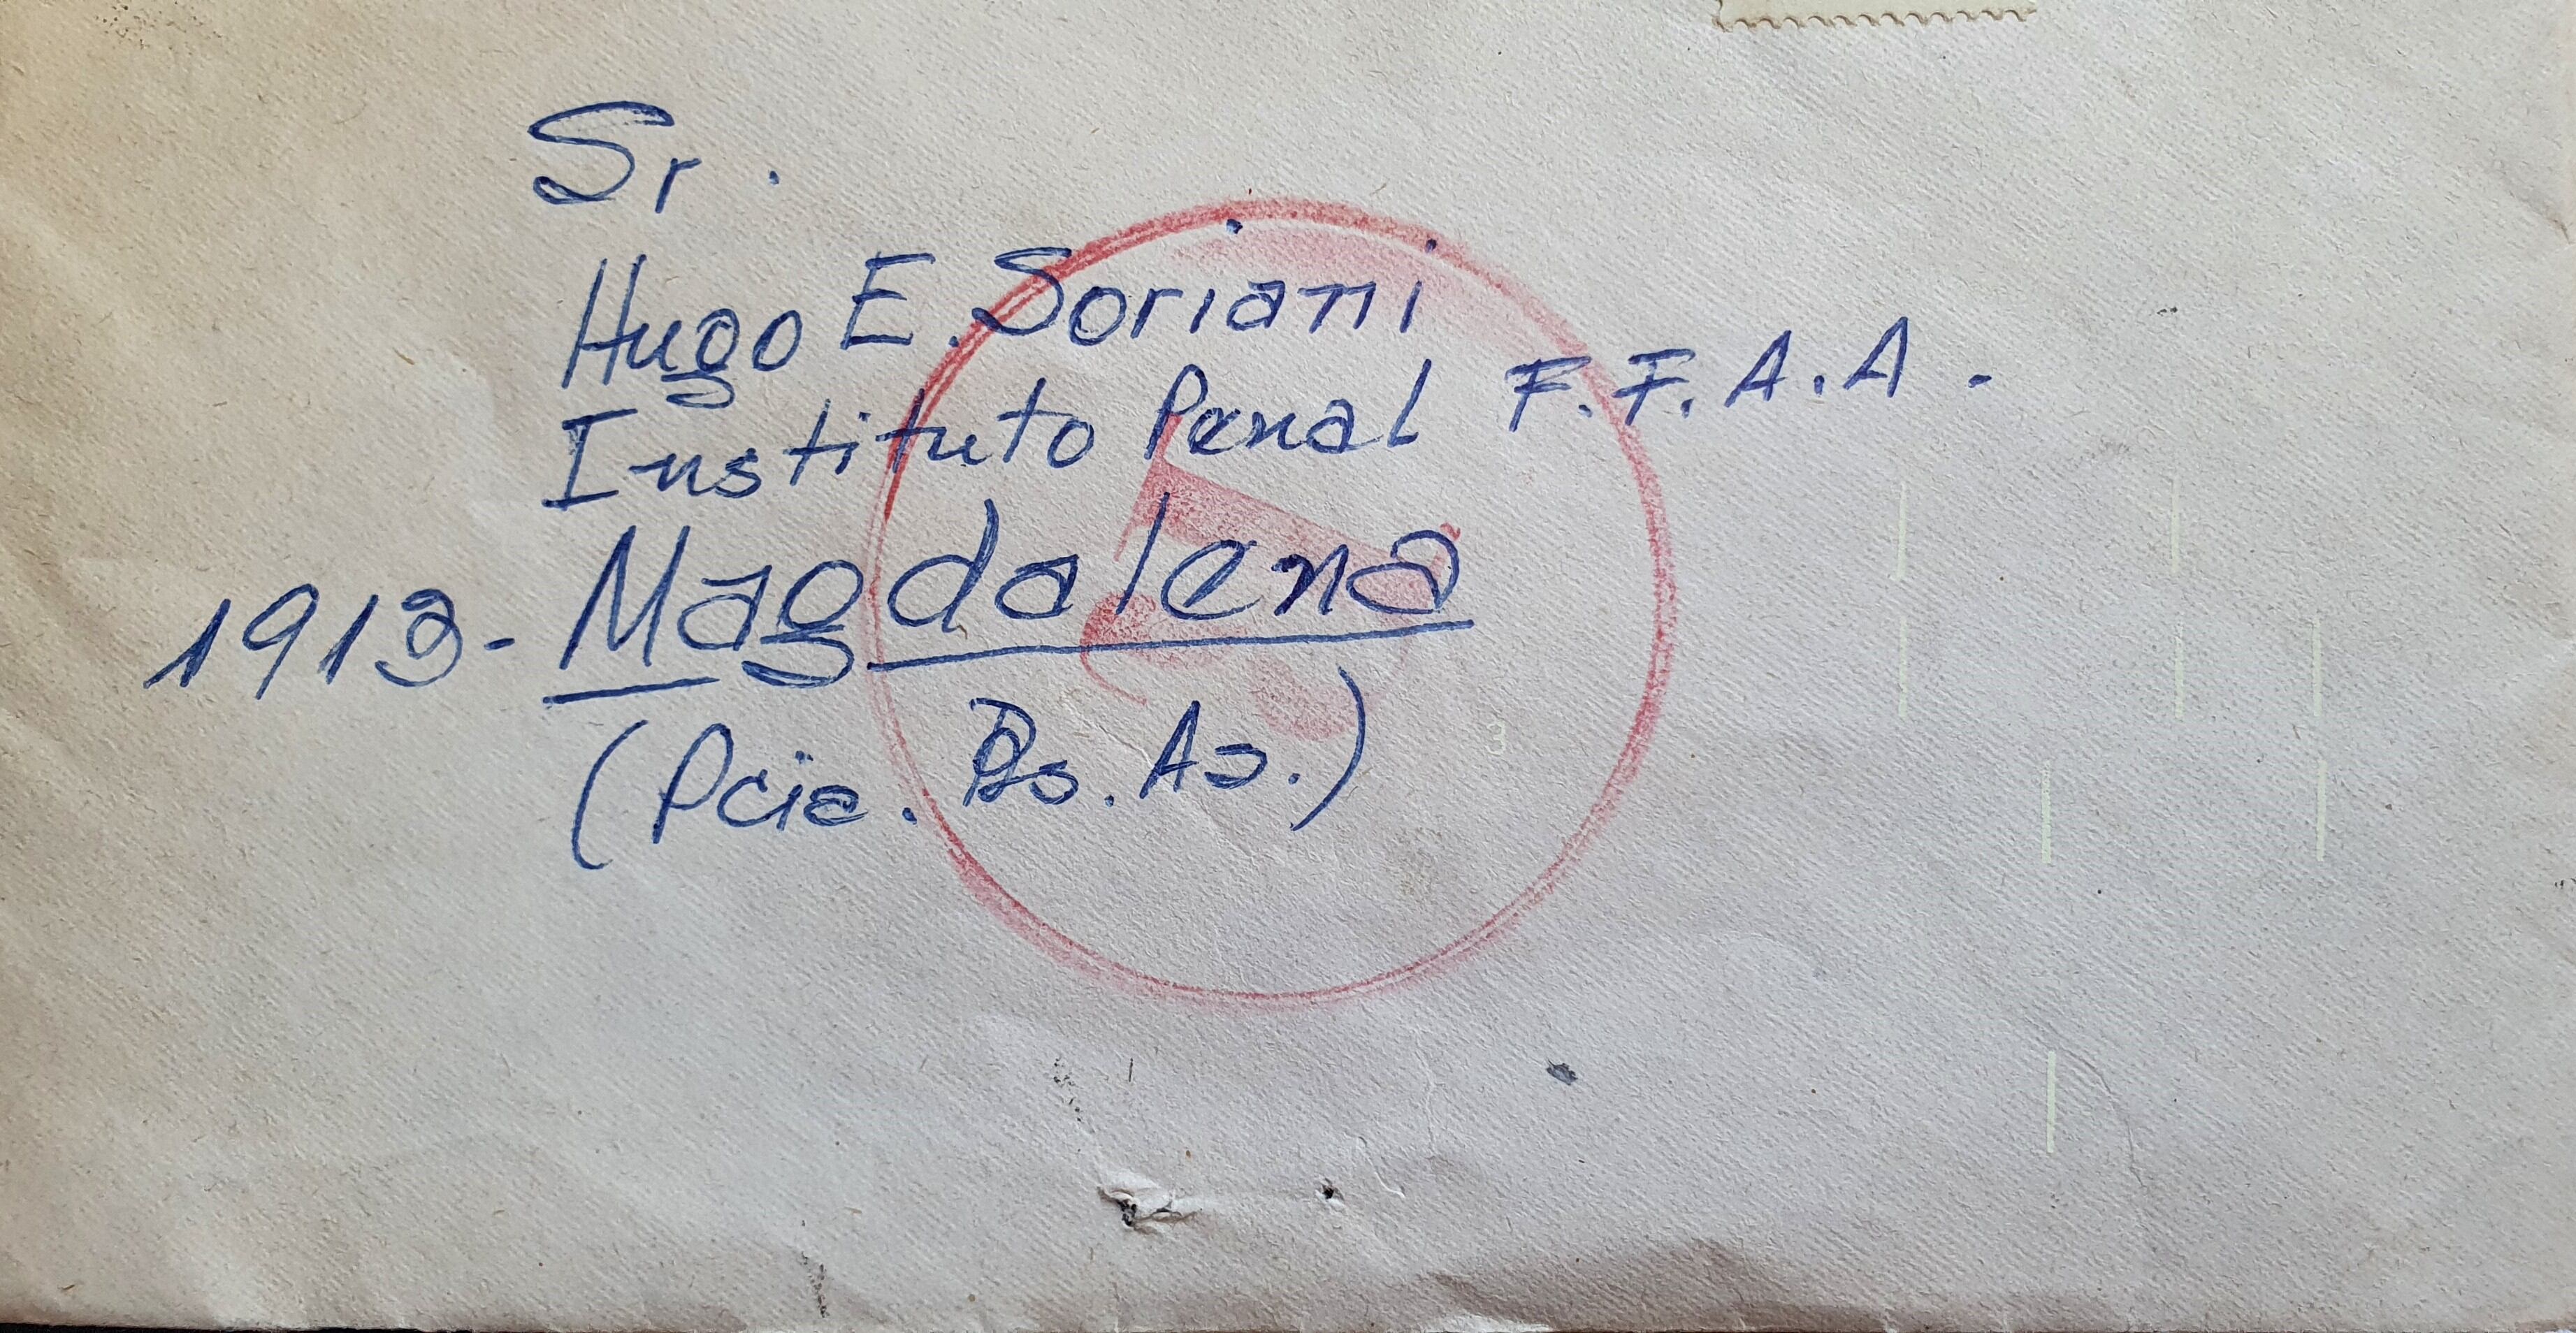 Sr.
Hugo E. Soriani
Instituto Penal F.F.A.A.
1913- Magdalena
(Pcia. Bs. As.)
3